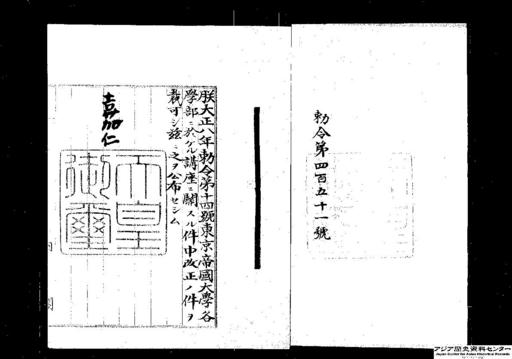 勅令第四百五十一號
朕大正八年勅令第十四號東京帝國大學各
學部ニ於ケル講座ニ關スル件中改正ノ件ヲ
裁可シ茲ニ之ヲ公布セシム
嘉仁
天皇
御璽
アジア歴史資料センター
Japan Center for Asian Historical Records